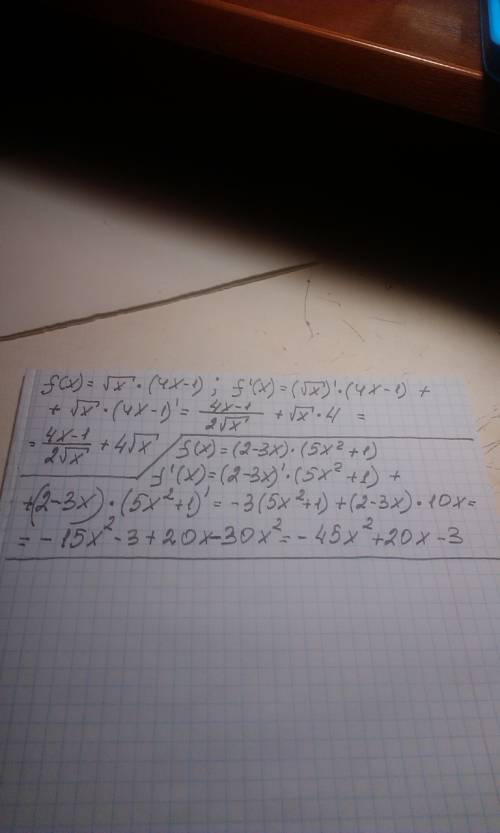 f(x) = √x · (4x-1) ; f'(x) = (√x)' · (4x-1) +
+ √x · (4x-1)' = (4x-1)/(2√x) + √x · 4 =
= (4x-1)/(2√x) + 4√x
f(x) = (2-3x) · (5x² + 1)
f'(x) = (2-3x)' · (5x² + 1) +
+(2-3x) · (5x² + 1)' = -3(5x²+1) + (2-3x) · 10x =
= - 15x² - 3 + 20x - 30x² = - 45x² + 20x - 3